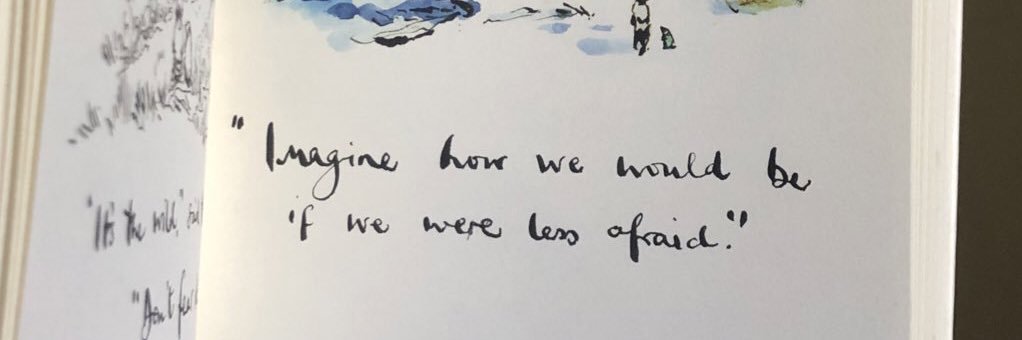 "It's the wild,"
"Don't fear
"Imagine how we would be
if we were less afraid."